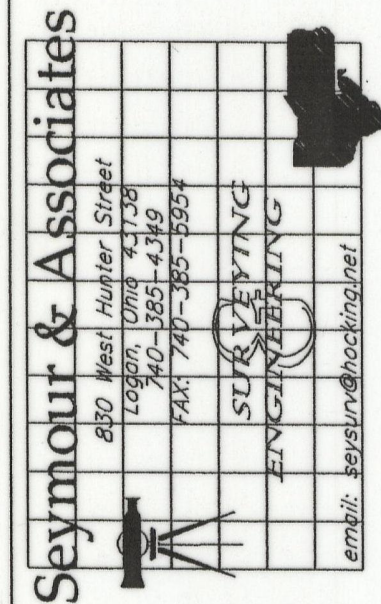 Seymour & Associates
830 West Hunter Street
Logan, Ohio 43138
740-385-4349
FAX: 740-385-5954
SURVEYING
&
ENGINEERING
email: seysurv@hocking.net